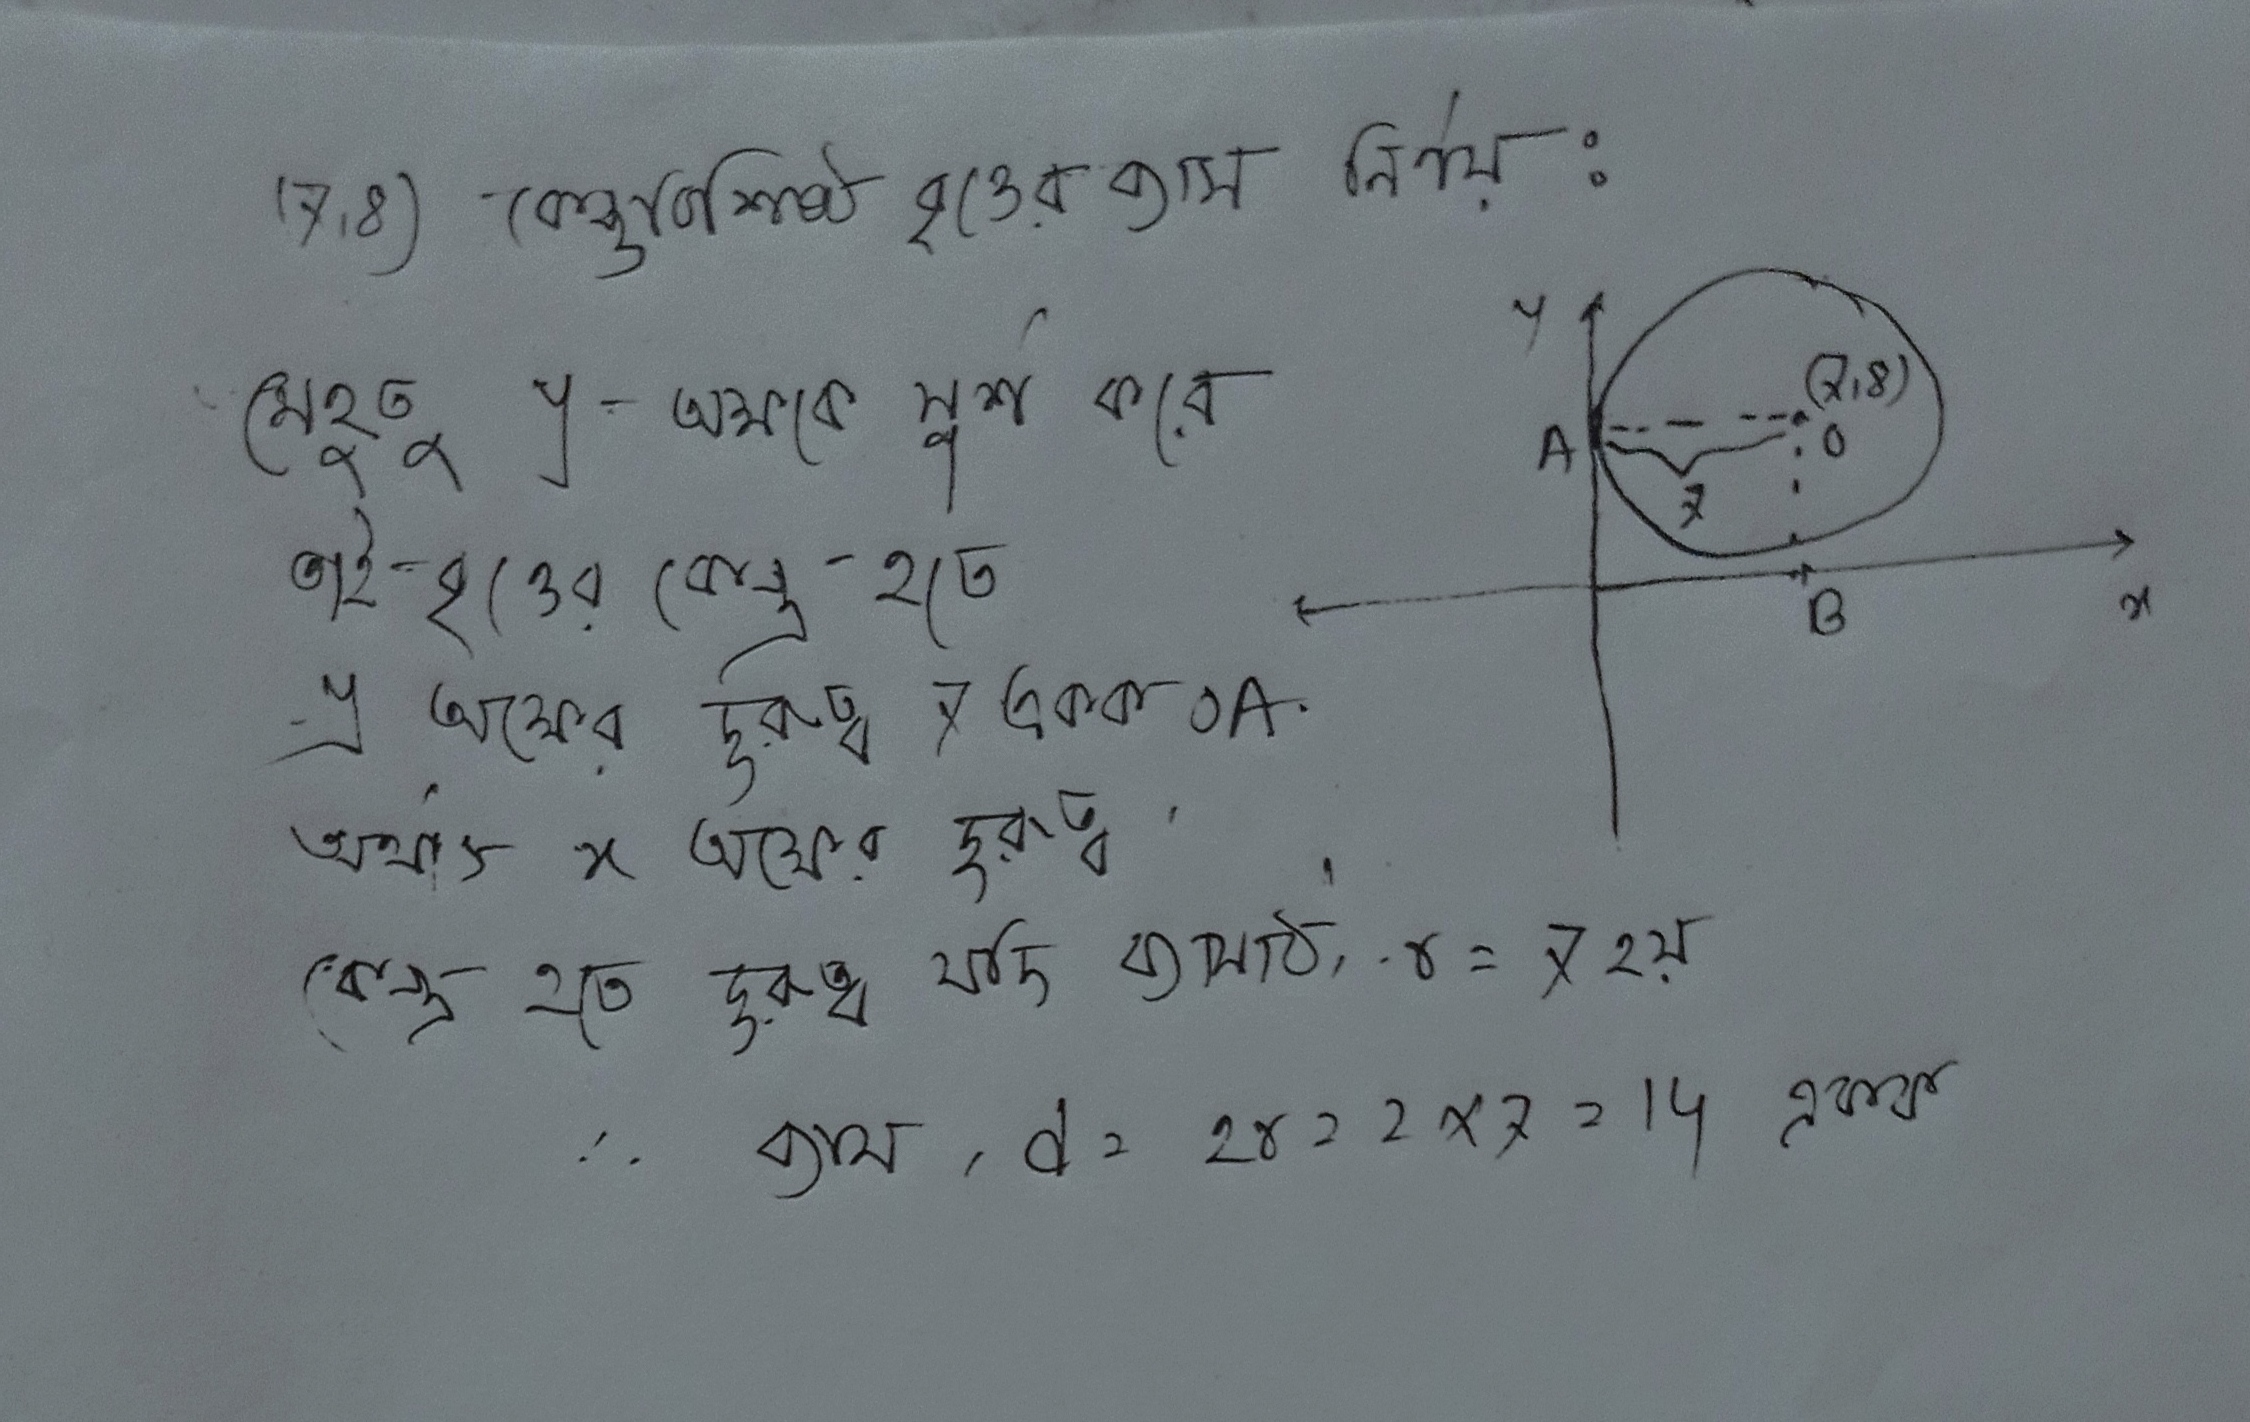 (7,8) কেন্দ্রবিশিষ্ট বৃত্তের ব্যাস নির্ণয় :
যেহেতু y - অক্ষকে স্পর্শ করে
তাই বৃত্তের কেন্দ্র হতে
y অক্ষের দুরুত্ব 7 একক OA.
অর্থাৎ x অক্ষের দুরুত্ব
কেন্দ্র হতে দুরুত্ব যদি ব্যাসার্ধ, r = 7 হয়
∴ ব্যাস, d = 2r = 2 × 7 = 14 একক
y
(7,8)
A
O
7
B
x